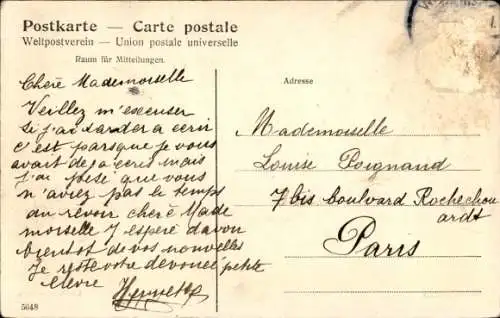 Postkarte — Carte postale
Weltpostverein — Union postale universelle
Raum für Mitteilungen.
Adresse
Cherè Mademoiselle
Veillez m'escuser
si j'ai tarder a ecrir
c'est parsque je vous
avait deja ecris mais
j'ai pensé que vous
n'aviez pas le temps
au revoir cherè Made
moiselle J'esperè davon
bientot de vos nouvelles
Je reste votre devouee petite
elevre
Mademoiselle
Louise Poignand
7 bis boulvard Rochechou
ardt
Paris
5648